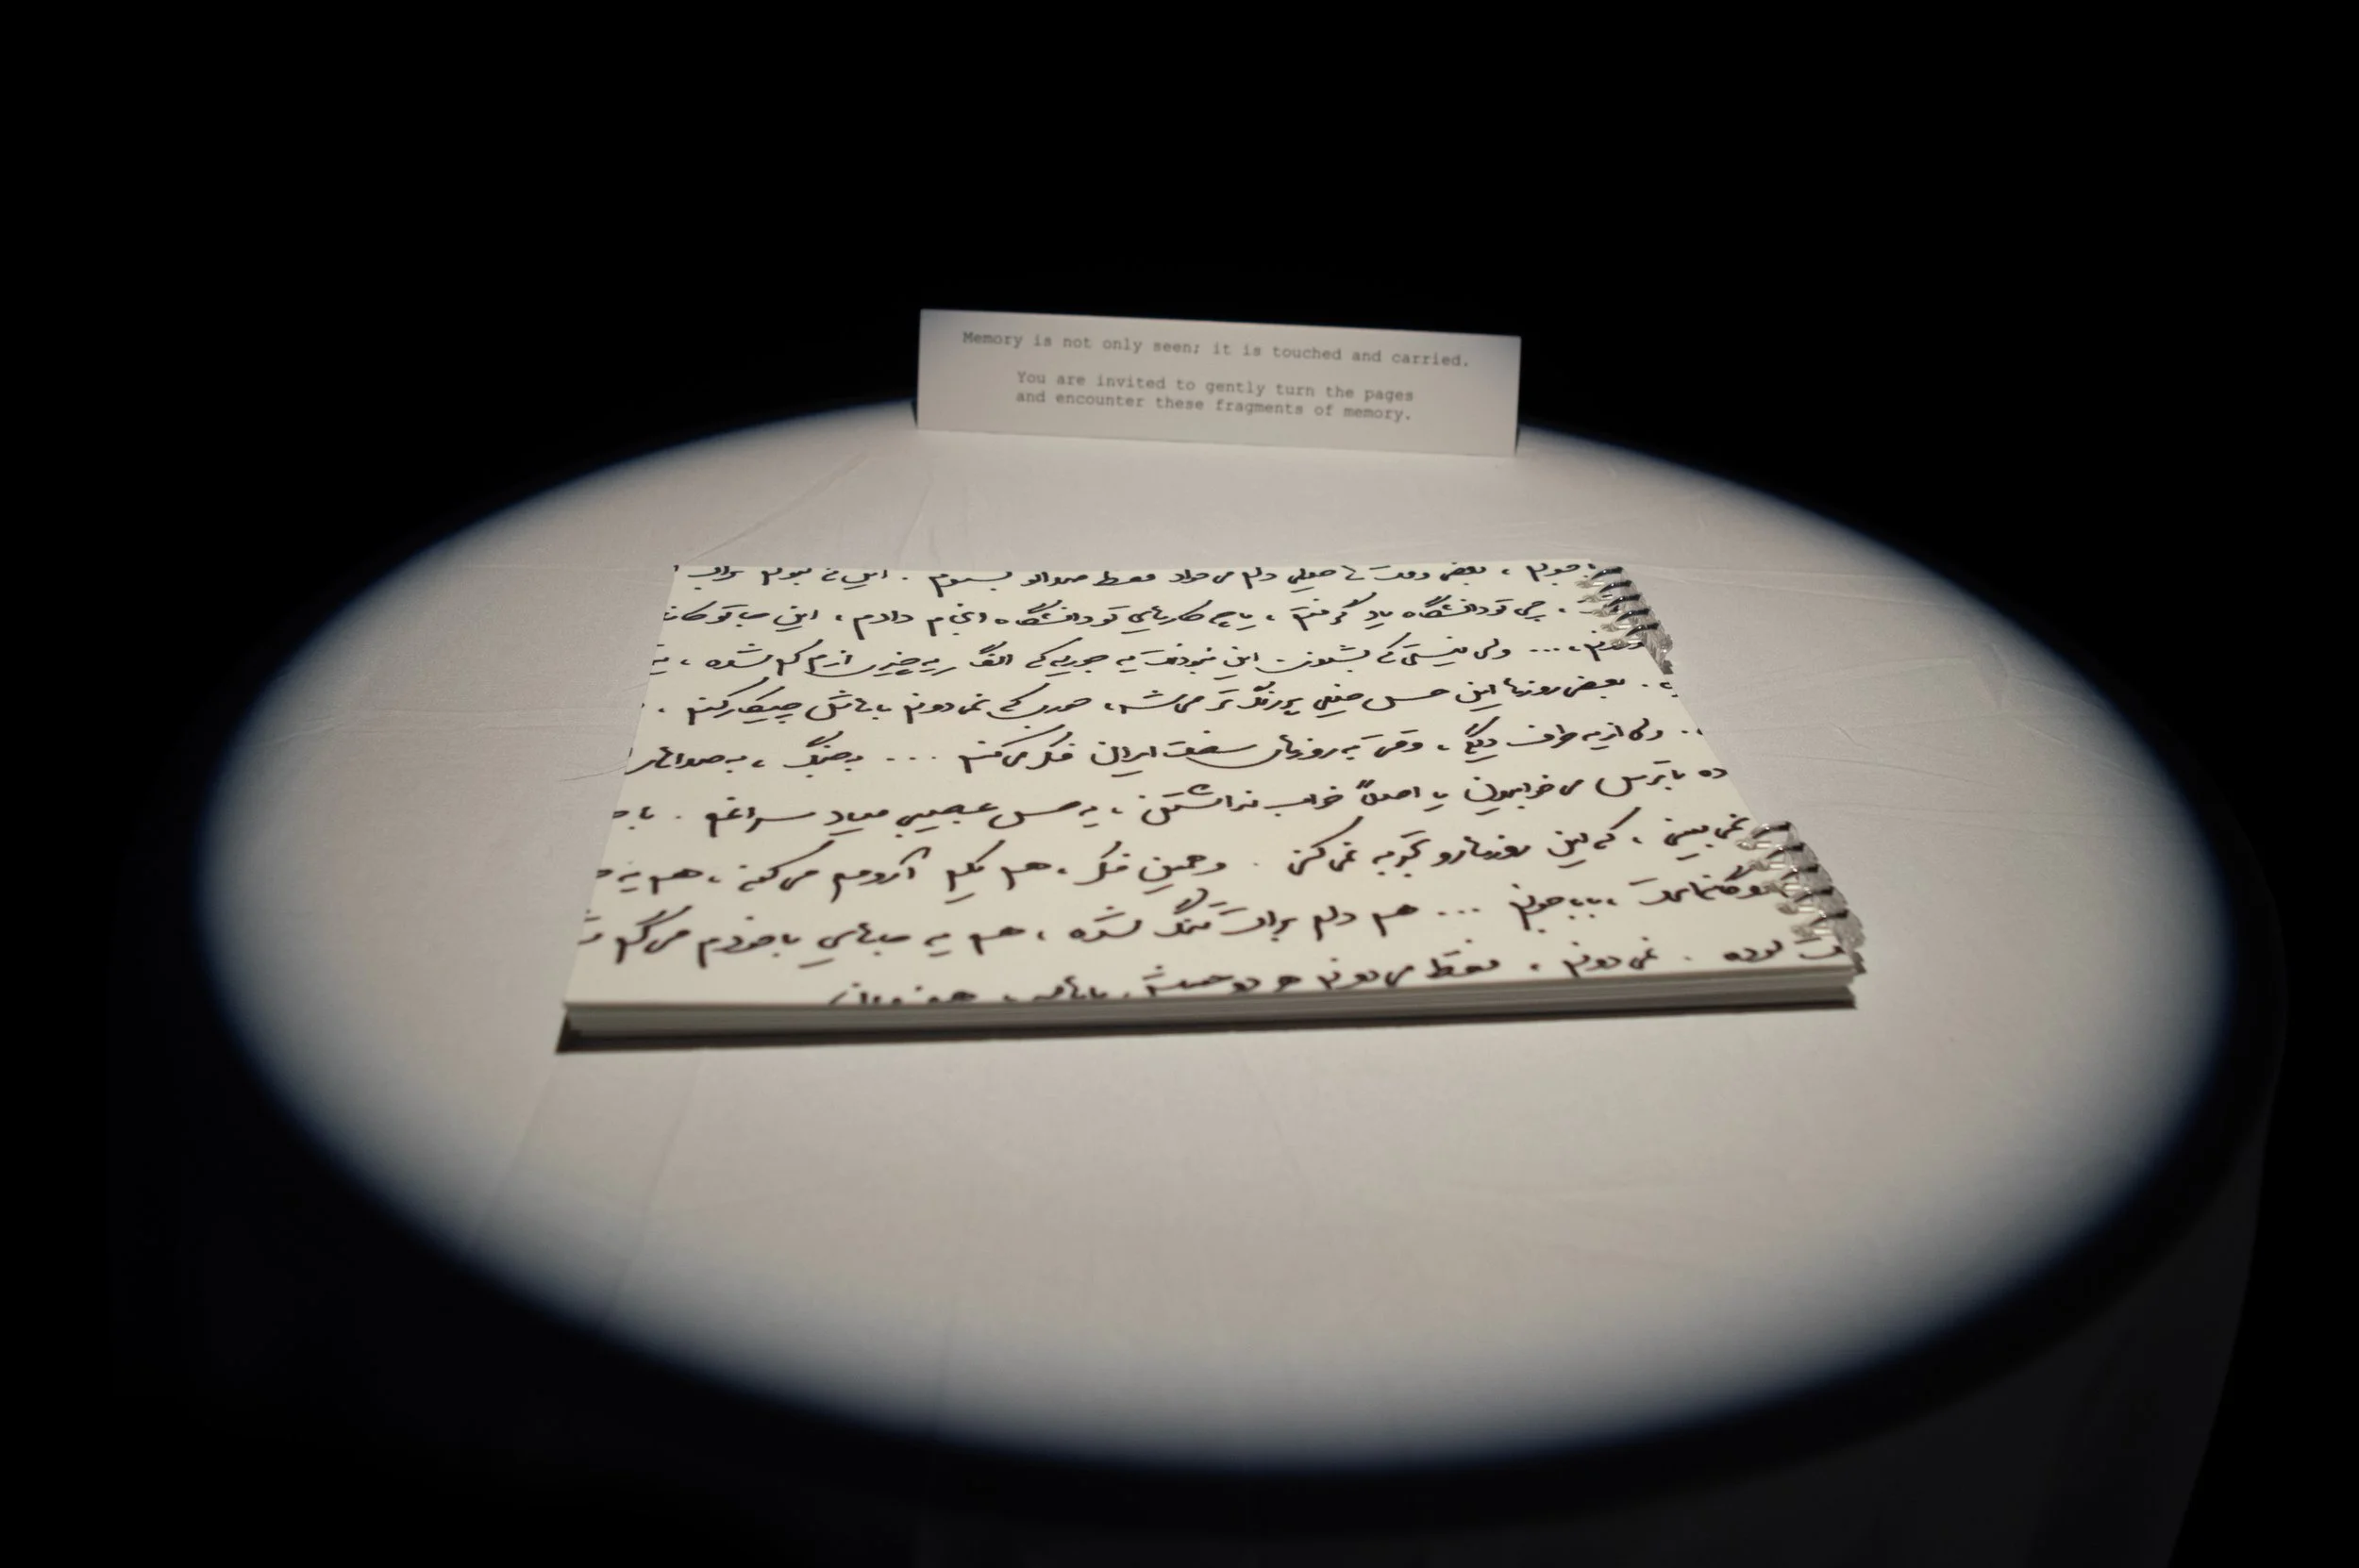 Memory is not only seen; it is touched and carried.
You are invited to gently turn the pages
and encounter these fragments of memory.
جونم ، بعضی وقت‌ها خیلی دلم می‌خواد فقط صداتو بشنوم . این‌که بتونم برات
، چی تو دانشگاه یاد گرفتم ، یا چه کارهایی تو دانشگاه انجام دادم ،
... ولی نیستی که بشنوی این نبودنت یه جوریه که انگار یه چیزی ازم کم شده ، یه
. بعضی روزها این حس خیلی پررنگ‌تر می‌شه ، که نمی‌دونم باهاش چیکار کنم .
. ولی از یه طرف دیگه ، وقتی به روزهای سخت ایران فکر می‌کنم ... به جنگ ، به صداهای
با ترس می‌خوابیدن یا اصلاً خواب نداشتن ، یه حس عجیبی میاد سراغم .
نمی‌بینی ، که این روزها رو تجربه نمی‌کنی . و همین فکر ، هم یکم آرومم می‌کنه ، هم یه
، بابا جونم ... هم دلم برات تنگ شده ، هم یه جاهایی با خودم می‌گم
بوده . نمی‌دونم ، فقط می‌دونم هر دو حسش باهامه ،